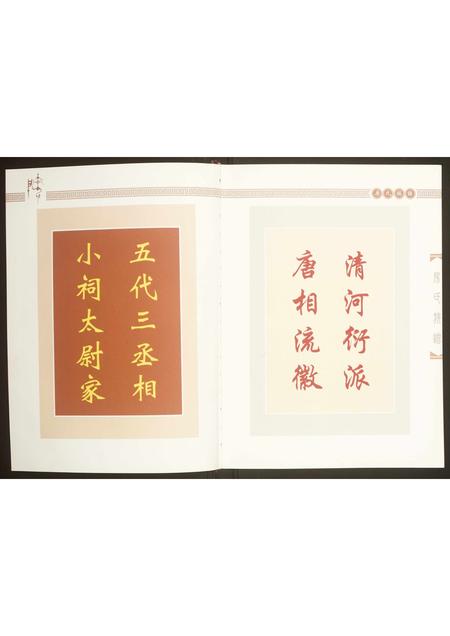 清河衍派
唐相流徽
五代三丞相
小祠太尉家